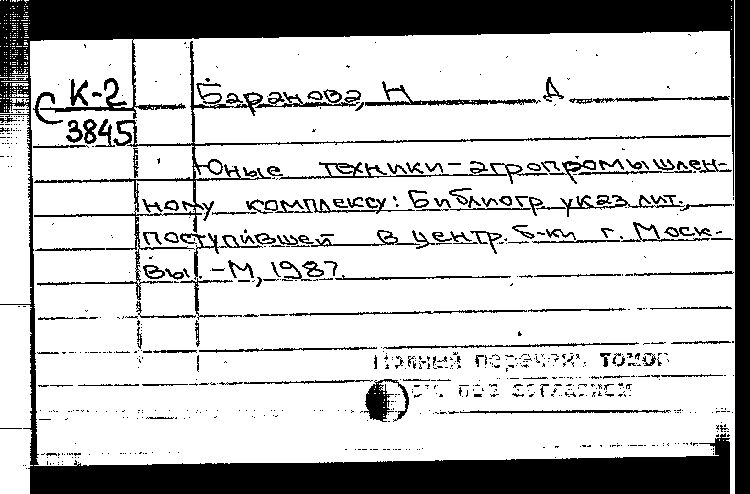 С К-2 Баранова, Н А
3845
Юные техники-агропромышлен-
ному комплексу: Библиогр указ лит.,
поступившей в центр. б-ки г. Моск-
вы. -М, 1987.
Полный перечень томов
см. под заглавием